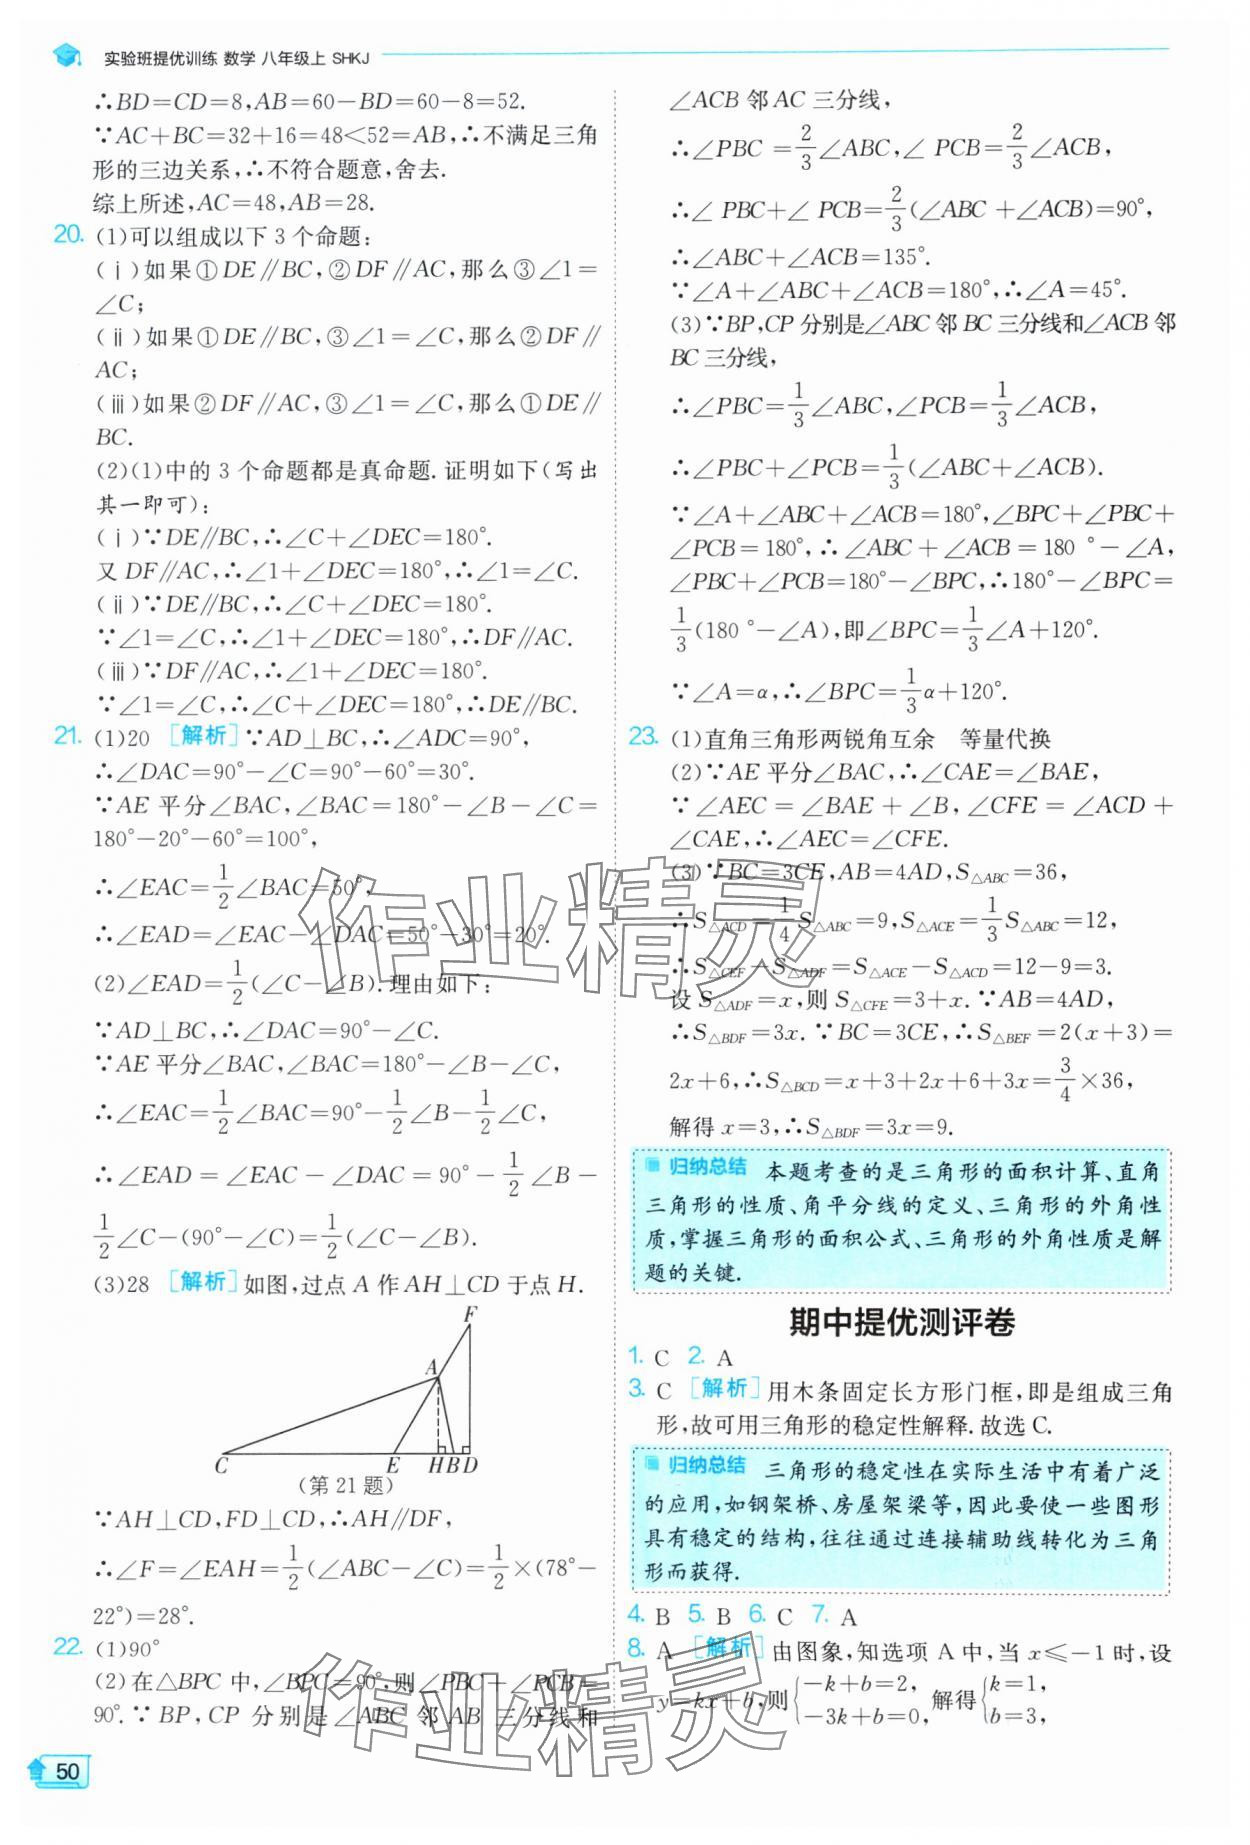 实验班提优训练 数学 八年级上 SHKJ
∴BD=CD=8,AB=60-BD=60-8=52.
∵AC+BC=32+16=48<52=AB,∴不满足三角
形的三边关系,∴不符合题意,舍去.
综上所述,AC=48,AB=28.
20. (1)可以组成以下3个命题:
(ⅰ)如果①DE∥BC,②DF∥AC,那么③∠1=
∠C;
(ⅱ)如果①DE∥BC,③∠1=∠C,那么②DF∥
AC;
(ⅲ)如果②DF∥AC,③∠1=∠C,那么①DE∥
BC.
(2)(1)中的3个命题都是真命题.证明如下(写出
其一即可):
(ⅰ)∵DE∥BC,∴∠C+∠DEC=180°.
又DF∥AC,∴∠1+∠DEC=180°,∴∠1=∠C.
(ⅱ)∵DE∥BC,∴∠C+∠DEC=180°.
∵∠1=∠C,∴∠1+∠DEC=180°,∴DF∥AC.
(ⅲ)∵DF∥AC,∴∠1+∠DEC=180°.
∵∠1=∠C,∴∠C+∠DEC=180°,∴DE∥BC.
21. (1)20 [解析]∵AD⊥BC,∴∠ADC=90°,
∴∠DAC=90°-∠C=90°-60°=30°.
∵AE平分∠BAC,∠BAC=180°-∠B-∠C=
180°-20°-60°=100°,
∴∠EAC=1/2∠BAC=50°,
∴∠EAD=∠EAC-∠DAC=50°-30°=20°.
(2)∠EAD=1/2(∠C-∠B).理由如下:
∵AD⊥BC,∴∠DAC=90°-∠C.
∵AE平分∠BAC,∠BAC=180°-∠B-∠C,
∴∠EAC=1/2∠BAC=90°-1/2∠B-1/2∠C,
∴∠EAD=∠EAC-∠DAC=90°-1/2∠B-
1/2∠C-(90°-∠C)=1/2(∠C-∠B).
(3)28 [解析]如图,过点A作AH⊥CD于点H.
F
A
C E H B D
(第21题)
∵AH⊥CD,FD⊥CD,∴AH∥DF,
∴∠F=∠EAH=1/2(∠ABC-∠C)=1/2×(78°-
22°)=28°.
22. (1)90°
(2)在△BPC中,∠BPC=90°,则∠PBC+∠PCB=
90°.∵BP,CP分别是∠ABC邻AB三分线和
∠ACB邻AC三分线,
∴∠PBC=2/3∠ABC,∠PCB=2/3∠ACB,
∴∠PBC+∠PCB=2/3(∠ABC+∠ACB)=90°,
∴∠ABC+∠ACB=135°.
∵∠A+∠ABC+∠ACB=180°,∴∠A=45°.
(3)∵BP,CP分别是∠ABC邻BC三分线和∠ACB邻
BC三分线,
∴∠PBC=1/3∠ABC,∠PCB=1/3∠ACB,
∴∠PBC+∠PCB=1/3(∠ABC+∠ACB).
∵∠A+∠ABC+∠ACB=180°,∠BPC+∠PBC+
∠PCB=180°,∴∠ABC+∠ACB=180°-∠A,
∠PBC+∠PCB=180°-∠BPC,∴180°-∠BPC=
1/3(180°-∠A),即∠BPC=1/3∠A+120°.
∵∠A=α,∴∠BPC=1/3α+120°.
23. (1)直角三角形两锐角互余 等量代换
(2)∵AE平分∠BAC,∴∠CAE=∠BAE,
∵∠AEC=∠BAE+∠B,∠CFE=∠ACD+
∠CAE,∴∠AEC=∠CFE.
(3)∵BC=3CE,AB=4AD,S△ABC=36,
∴S△ACD=1/4S△ABC=9,S△ACE=1/3S△ABC=12,
∴S△CEF-S△ADF=S△ACE-S△ACD=12-9=3.
设S△ADF=x,则S△CFE=3+x.∵AB=4AD,
∴S△BDF=3x.∵BC=3CE,∴S△BEF=2(x+3)=
2x+6,∴S△BCD=x+3+2x+6+3x=3/4×36,
解得x=3,∴S△BDF=3x=9.
归纳总结 本题考查的是三角形的面积计算、直角
三角形的性质、角平分线的定义、三角形的外角性
质,掌握三角形的面积公式、三角形的外角性质是解
题的关键.
期中提优测评卷
1. C 2. A
3. C [解析]用木条固定长方形门框,即是组成三角
形,故可用三角形的稳定性解释.故选C.
归纳总结 三角形的稳定性在实际生活中有着广泛
的应用,如钢架桥、房屋架梁等,因此要使一些图形
具有稳定的结构,往往通过连接辅助线转化为三角
形而获得.
4. B 5. B 6. C 7. A
8. A [解析]由图象,知选项A中,当x≤-1时,设
y=kx+b,则{-k+b=2, -3k+b=0, 解得{k=1, b=3,
50
作业精灵
作业精灵